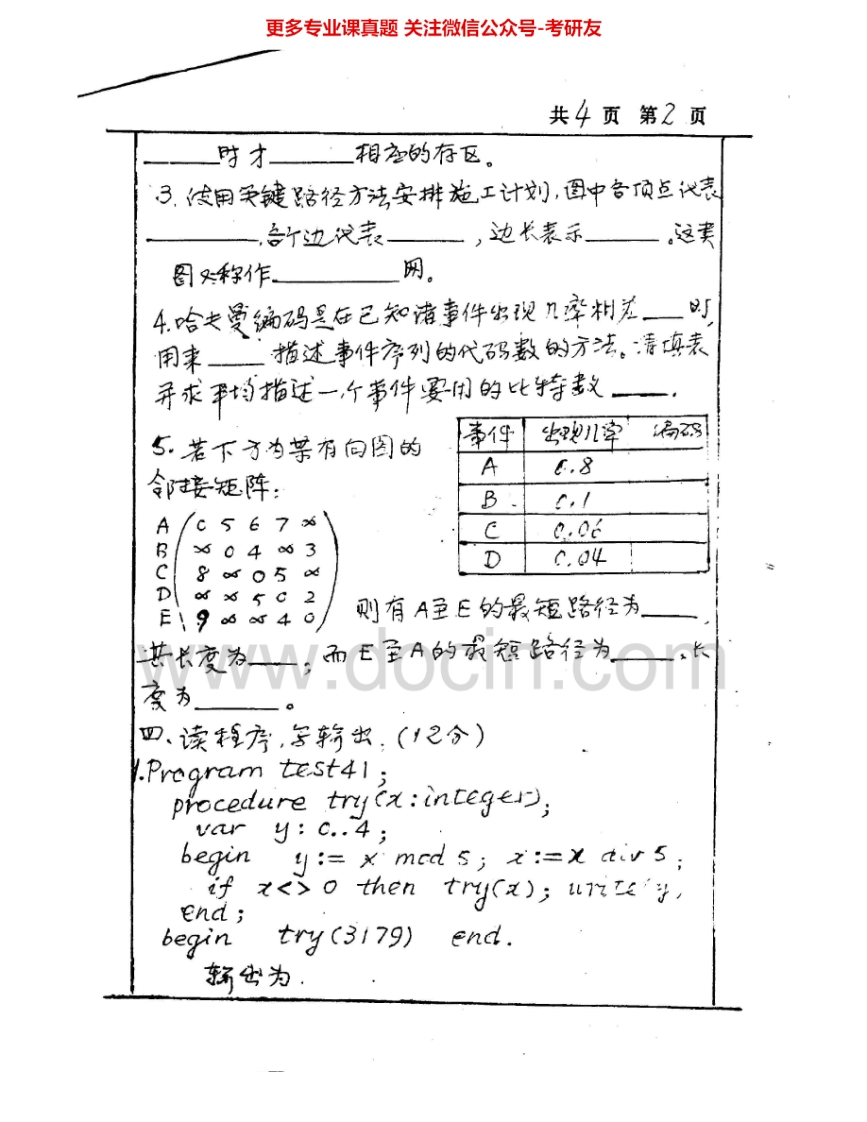 更多专业课真题 关注微信公众号-考研友
共4页 第2页
______时才______相应的存区。
3.使用关键路径方法安排施工计划,图中各顶点代表
______,各个边代表______,边长表示______。这类
图又称作______网。
4.哈夫曼编码是在已知诸事件出现几率相差___时,
用来____描述事件序列的代码数的方法。请填表
并求平均描述一个事件要用的比特数____.
事件 出现几率 编码
A 0.8
B 0.1
C 0.06
D 0.04
5.若下方为某有向图的
邻接矩阵:
A 0 5 6 7 ∞
B ∞ 0 4 ∞ 3
C 8 ∞ 0 5 ∞
D ∞ ∞ 5 0 2
E 9 ∞ ∞ 4 0
则有A至E的最短路径为____,
其长度为____;而E至A的最短路径为____,长
度为______。
www.docin.com
四、读程序,写输出.(12分)
1.Program test41;
procedure try(x:integer);
var y:0..4;
begin y:= x mod 5; x:=x div 5;
if x<>0 then try(x); write y,
end;
begin try(3179) end.
输出为.